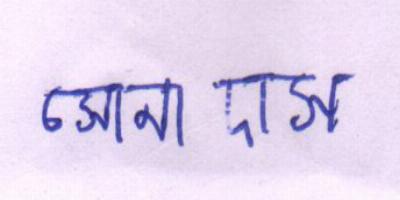 সোনা দাস